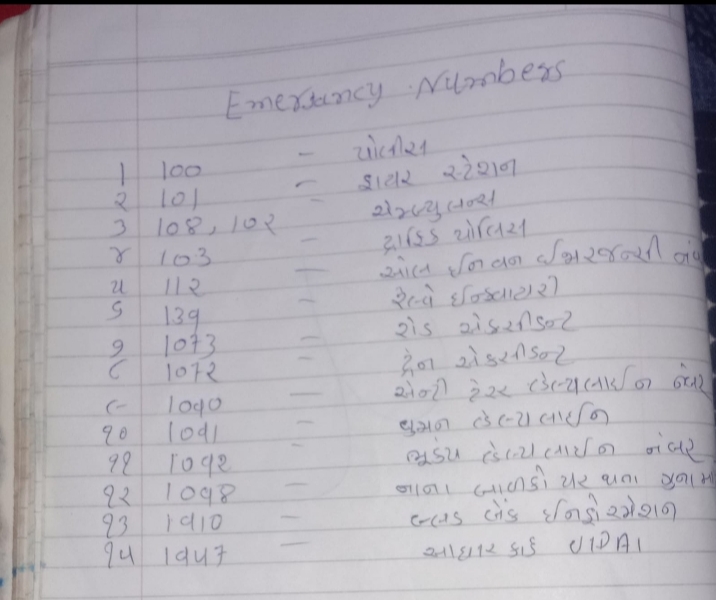 Emergancy Numbers
1 100 - પોલીસ
૨ 101 - ફાયર સ્ટેશન
૩ 108, 102 - એમ્બ્યુલન્સ
૪ 103 - ટ્રાફિક પોલિસ
૫ 112 - ઓલ ઈન વન ઈમરજન્સી નંબ
૬ 139 - રેલ્વે ઈન્કવાયરી
૭ 1073 - રોડ એકસીડન્ટ
૮ 1072 - ટ્રેન એકસીડન્ટ
૯ 1090 - એન્ટી ટેરર હેલ્પલાઈન નંબર
૧૦ 1091 - વુમન હેલ્પલાઈન
૧૧ 1092 - ભૂકંપ હેલ્પલાઈન નંબર
૧૨ 1098 - નાના બાળકો પર થતા ગુના મા
૧૩ 1910 - બ્લડ બેંક ઈનફોરમેશન
૧૫ 1947 - આધાર કાર્ડ UIDAI